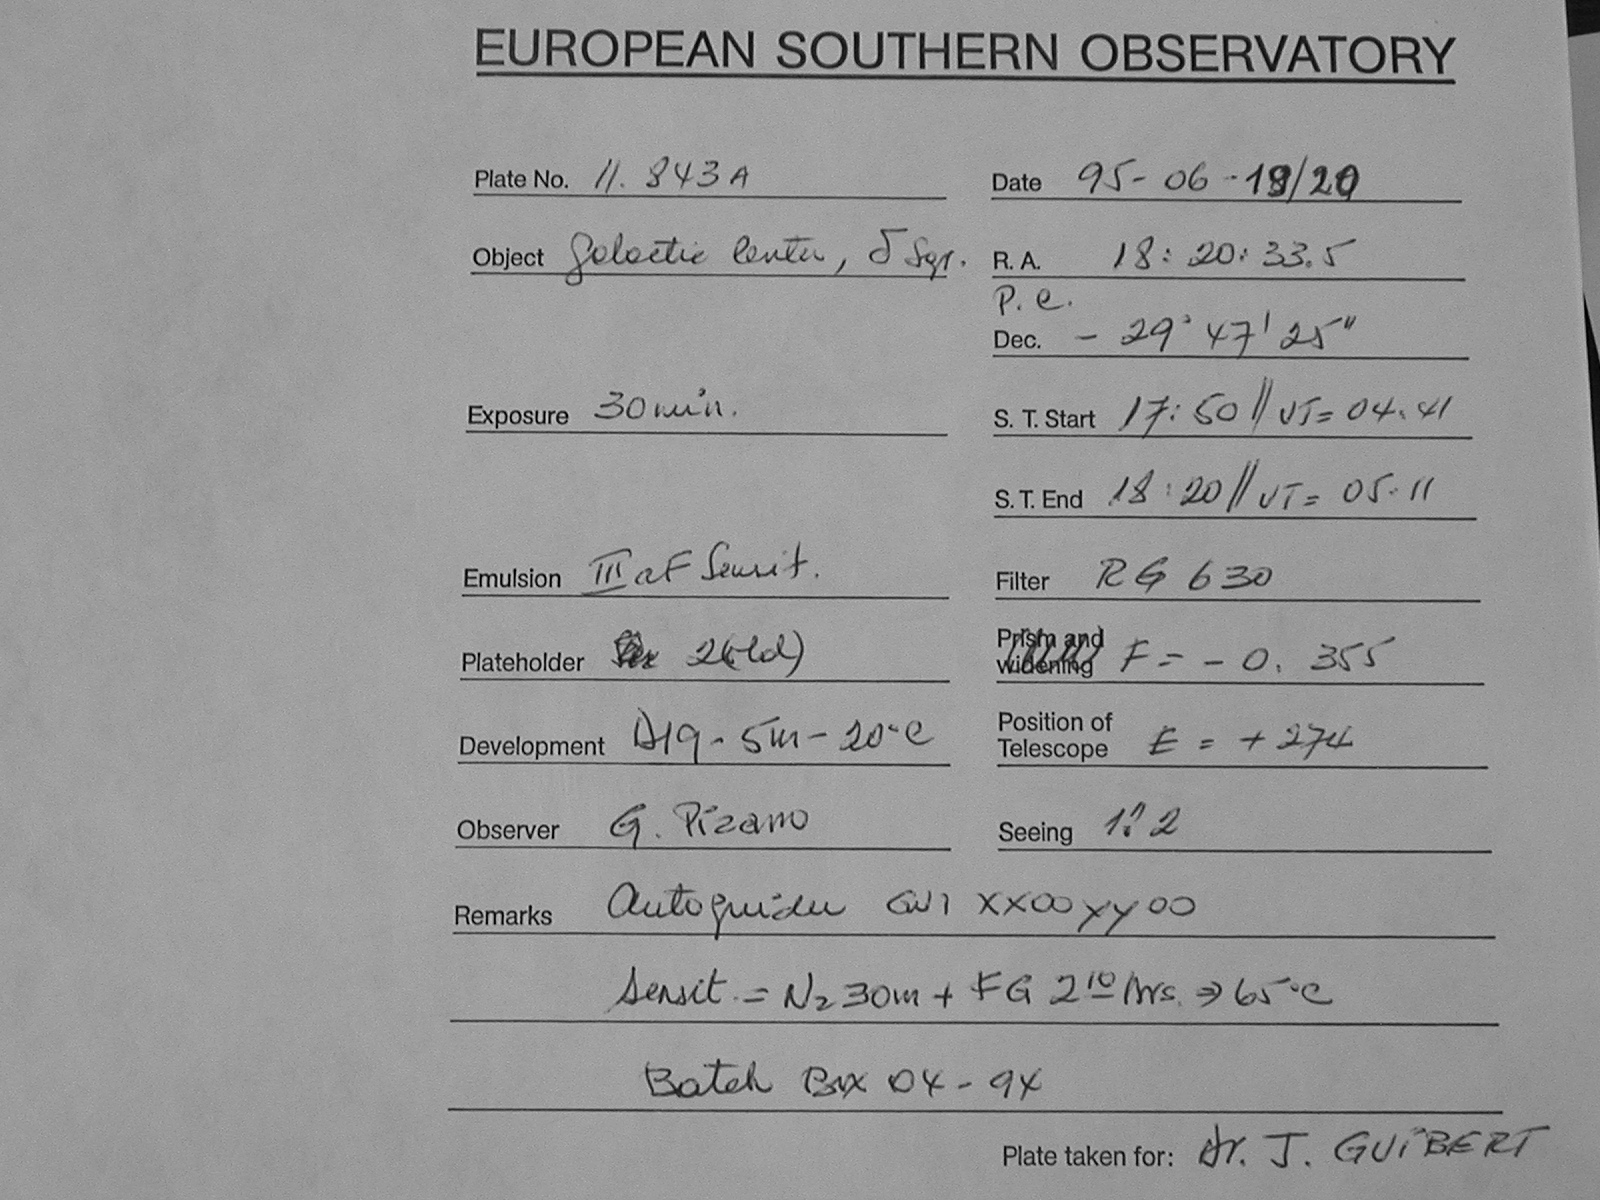 EUROPEAN SOUTHERN OBSERVATORY
Plate No. 11.843A Date 95-06-19/20
Object Galactic Center, δ Sgr. R. A. 18:20:33.5
P. e.
Dec. - 29° 47' 25"
Exposure 30 min. S. T. Start 17:50 // UT= 04.41
S. T. End 18:20 // UT= 05.11
Emulsion III aF Sensit. Filter RG 630
Plateholder 2(Ld) Prism and widening F = - 0. 355
Development D19 - 5m - 20°C Position of Telescope E = + 274
Observer G. Pizarro Seeing 1."2
Remarks Autoguider GW1 XX00 YY00
Sensit. = N2 30m + FG 2 10/hrs. ⇒ 65°C
Batch Box 04 - 94
Plate taken for: Dr. J. GUIBERT